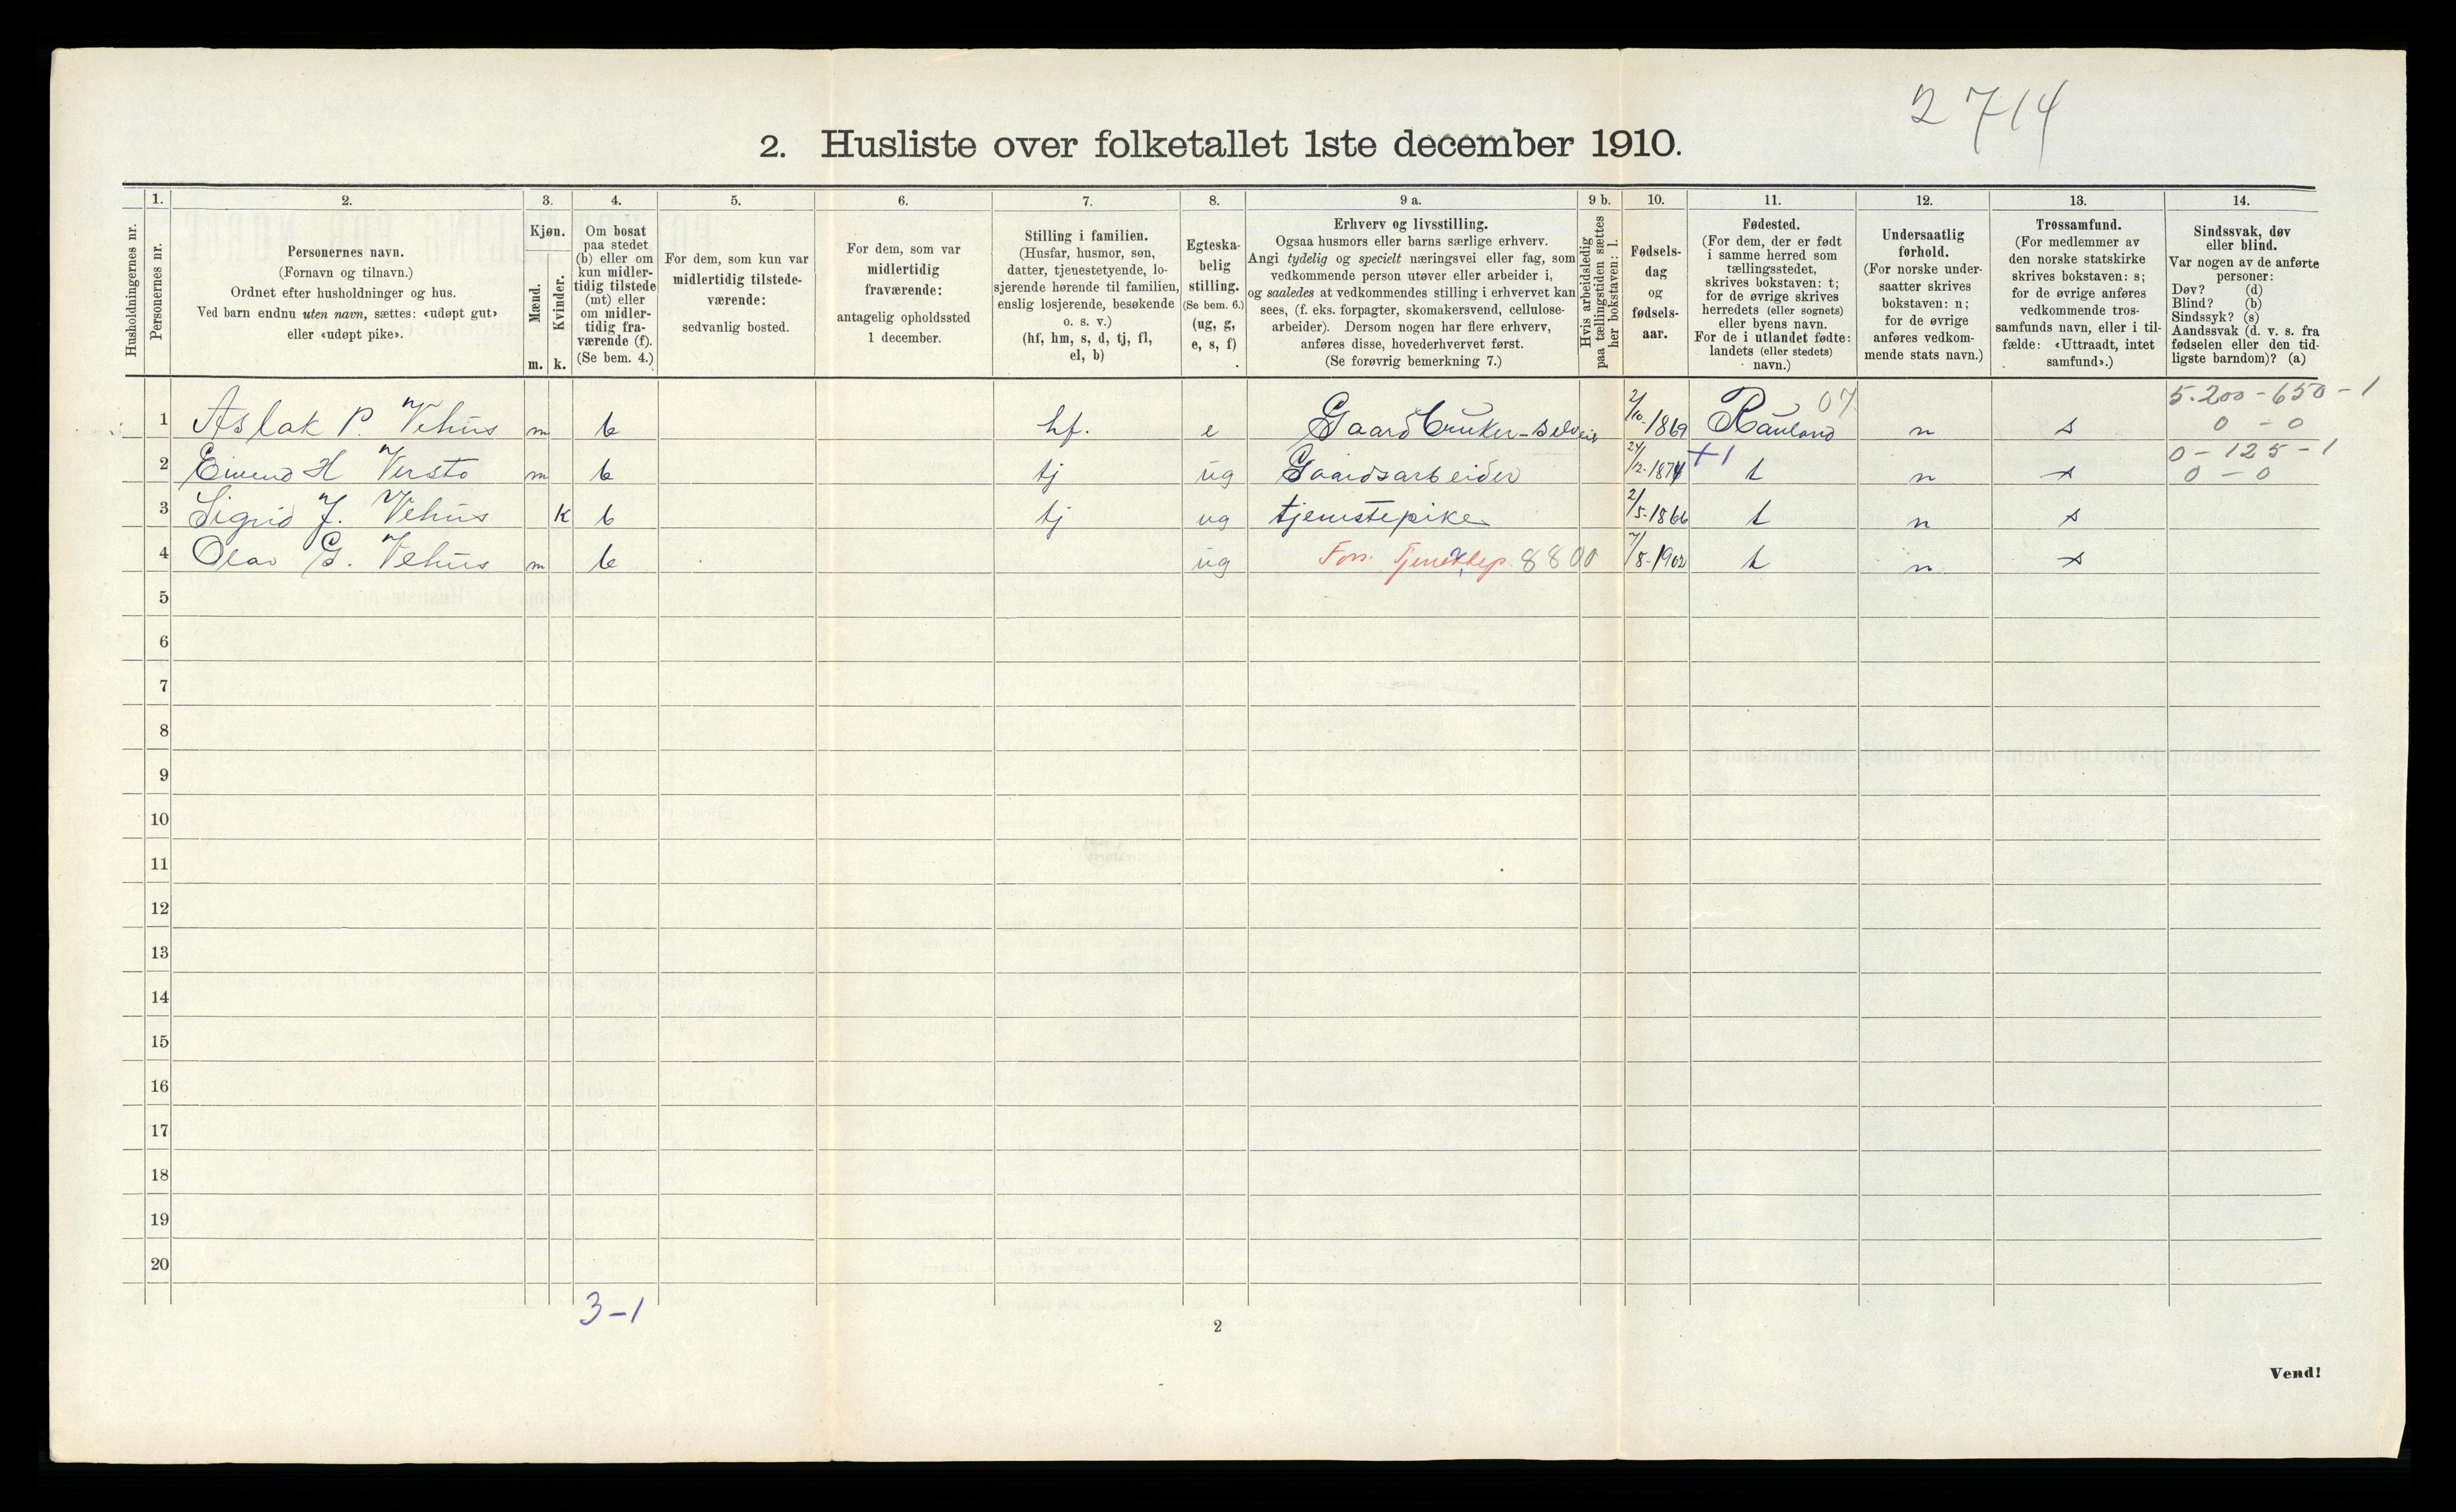 2 714
2. Husliste over folketallet 1ste december 1910.
Husholdningernes nr.
1.
Personernes nr.
2.
Personernes navn.
(Fornavn og tilnavn.)
Ordnet efter husholdninger og hus.
Ved barn endnu uten navn, sættes: «udøpt gut»
eller «udøpt pike».
3.
Kjøn.
Mænd.
Kvinder.
m. k.
4.
Om bosat
paa stedet
(b) eller om
kun midler-
tidig tilstede
(mt) eller
om midler-
tidig fra-
værende (f).
(Se bem. 4.)
5.
For dem, som kun var
midlertidig tilstede-
værende:
sedvanlig bosted.
6.
For dem, som var
midlertidig
fraværende:
antagelig opholdssted
1 december.
7.
Stilling i familien.
(Husfar, husmor, søn,
datter, tjenestetyende, lo-
sjerende hørende til familien,
enslig losjerende, besøkende
o. s. v.)
(hf, hm, s, d, tj, fl,
el, b)
8.
Egteska-
belig
stilling.
(Se bem. 6.)
(ug, g,
e, s, f)
9 a.
Erhverv og livsstilling.
Ogsaa husmors eller barns særlige erhverv.
Angi tydelig og specielt næringsvei eller fag, som
vedkommende person utøver eller arbeider i,
og saaledes at vedkommendes stilling i erhvervet kan
sees, (f. eks. forpagter, skomakersvend, cellulose-
arbeider). Dersom nogen har flere erhverv,
anføres disse, hovederhvervet først.
(Se forøvrig bemerkning 7.)
9 b.
Hvis arbeidsledig
paa tællingstiden sættes
her bokstaven: l.
10.
Fødsels-
dag
og
fødsels-
aar.
11.
Fødested.
(For dem, der er født
i samme herred som
tællingsstedet,
skrives bokstaven: t;
for de øvrige skrives
herredets (eller sognets)
eller byens navn.
For de i utlandet fødte:
landets (eller stedets)
navn.)
12.
Undersaatlig
forhold.
(For norske under-
saatter skrives
bokstaven: n;
for de øvrige
anføres vedkom-
mende stats navn.)
13.
Trossamfund.
(For medlemmer av
den norske statskirke
skrives bokstaven: s;
for de øvrige anføres
vedkommende tros-
samfunds navn, eller i til-
fælde: «Uttraadt, intet
samfund».)
14.
Sindssvak, døv
eller blind.
Var nogen av de anførte
personer:
Døv? (d)
Blind? (b)
Sindssyk? (s)
Aandssvak (d. v. s. fra
fødselen eller den tid-
ligste barndom)? (a)
5.200 - 650 - 1
1 Aslak P. Vehus m b hf. e Gaardbruker-selveier 2/10-1869 Rauland 07 n s 0 - 0
0 - 125 - 1
2 Eivind H Versto m b tj ug Gaardsarbeider 24/12-1874 +1 t n s 0 - 0
3 Sigrid J. Vehus k b tj ug tjenestepike 2/5-1866 t n s
4 Olav G. Vehus m b ug Fors. Tjenestep. 8800 7/8-1902 t n s
5
6
7
8
9
10
11
12
13
14
15
16
17
18
19
20
3-1
2
Vend!